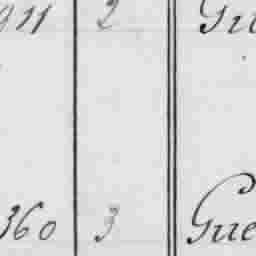 911 2 Gu
360 3 Gue